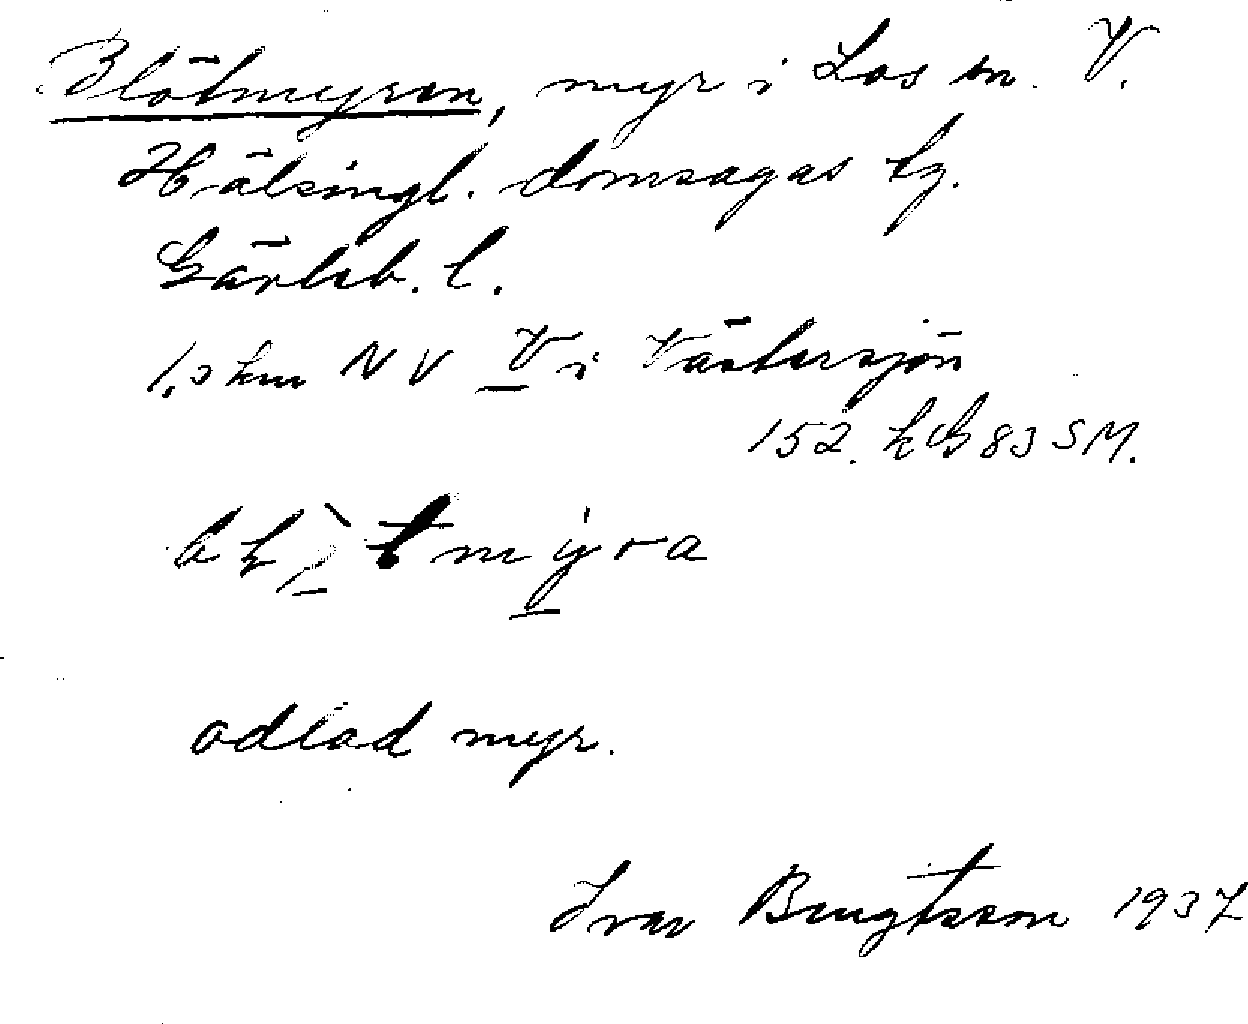 Blötmyran, myr i Los sn. V.
Hälsingl. domsagas tg.
Gävleb. l.
1,5 km NV V i Västersjön
152. k G 83 SM.
odlad myr.
Ivar Bengtsson 1937